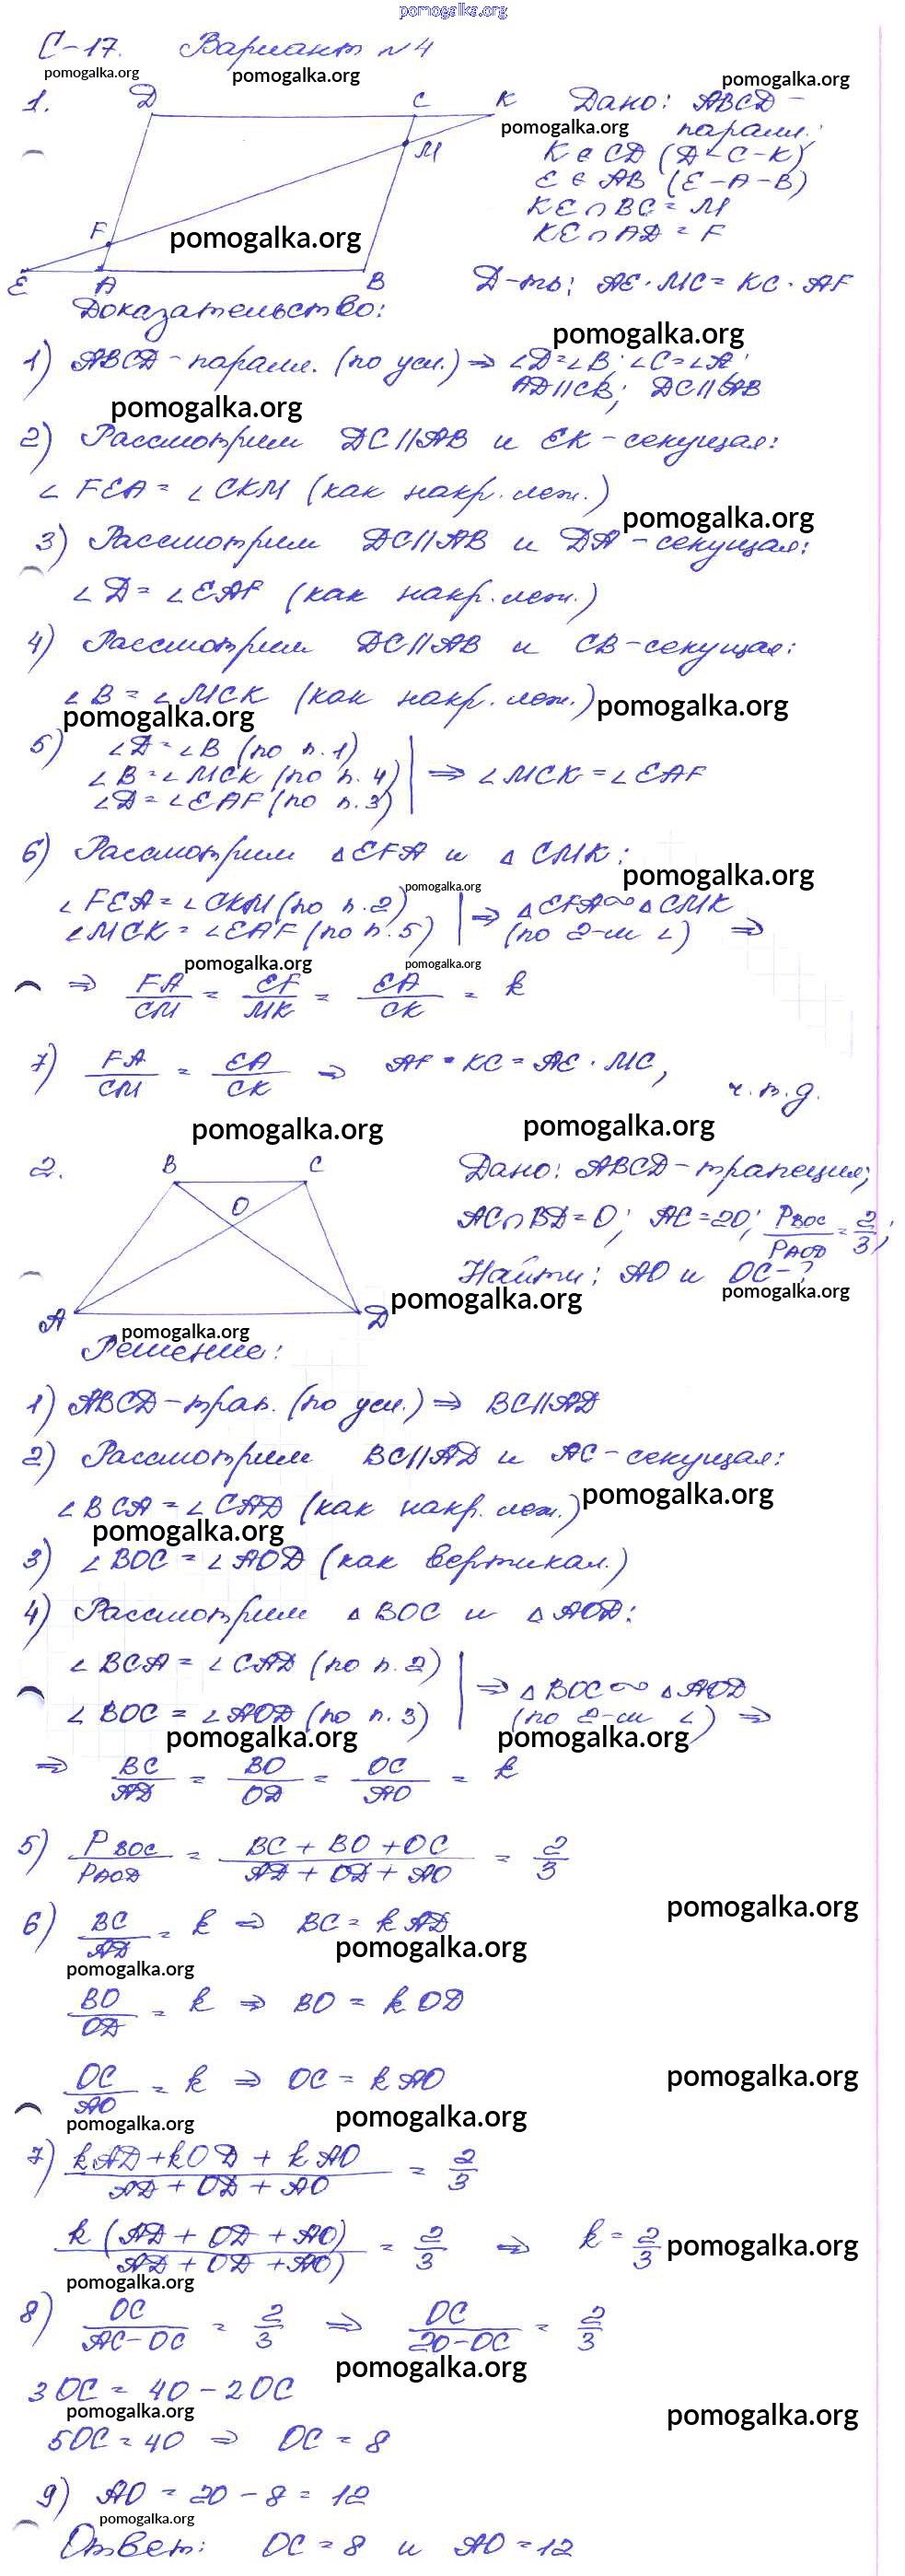 pomogalka.org
С-17. Вариант №4
pomogalka.org pomogalka.org pomogalka.org
1. D C K
M F E A B
pomogalka.org
pomogalka.org
Дано: ABCD -
паралл.
K ∈ CD (D-C-K)
E ∈ AB (E-A-B)
KE ∩ BC = M
KE ∩ AD = F
Д-ть: AE · MC = KC · AF
Доказательство:
pomogalka.org
1) ABCD - паралл. (по усл.) ⇒ ∠D=∠B; ∠C=∠A;
AD||CB; DC||AB
pomogalka.org
2) Рассмотрим DC||AB и EK-секущая:
∠FEA = ∠CKM (как накр. леж.)
pomogalka.org
3) Рассмотрим DC||AB и DA-секущая:
∠D = ∠EAF (как накр. леж.)
4) Рассмотрим DC||AB и CB-секущая:
∠B = ∠MCK (как накр. леж.)
pomogalka.org pomogalka.org
5) ∠D = ∠B (по п.1)
∠B = ∠MCK (по п.4) ⇒ ∠MCK = ∠EAF
∠D = ∠EAF (по п.3)
6) Рассмотрим △EFA и △CMK:
pomogalka.org
pomogalka.org
∠FEA = ∠CKM (по п.2) ⇒ △EFA ∾ △CMK
∠MCK = ∠EAF (по п.5) (по 2-м ∠) ⇒
pomogalka.org pomogalka.org
⇒ FA/CM = EF/MK = EA/CK = k
7) FA/CM = EA/CK ⇒ AF · KC = AE · MC,
ч.т.д.
pomogalka.org pomogalka.org
2. B C
O
A D
Дано: ABCD - трапеция;
AC ∩ BD = O; AC = 20; P BOC/P AOD = 2/3;
Найти: AO и OC - ?
pomogalka.org pomogalka.org
pomogalka.org
Решение:
1) ABCD - трап. (по усл.) ⇒ BC||AD
2) Рассмотрим BC||AD и AC-секущая:
∠BCA = ∠CAD (как накр. леж.)
pomogalka.org
pomogalka.org
3) ∠BOC = ∠AOD (как вертикал.)
4) Рассмотрим △BOC и △AOD:
∠BCA = ∠CAD (по п.2) ⇒ △BOC ∾ △AOD
∠BOC = ∠AOD (по п.3) (по 2-м ∠) ⇒
pomogalka.org pomogalka.org
⇒ BC/AD = BO/OD = OC/AO = k
5) P BOC/P AOD = BC + BO + OC/AD + OD + AO = 2/3
pomogalka.org
6) BC/AD = k ⇒ BC = k AD
pomogalka.org
pomogalka.org
BO/OD = k ⇒ BO = k OD
pomogalka.org
OC/AO = k ⇒ OC = k AO
pomogalka.org pomogalka.org
7) kAD + kOD + kAO/AD + OD + AO = 2/3
k (AD + OD + AO)/AD + OD + AO) = 2/3 ⇒ k = 2/3
pomogalka.org
pomogalka.org
8) OC/AC-OC = 2/3 ⇒ OC/20-OC = 2/3
pomogalka.org
3OC = 40 - 2OC
pomogalka.org pomogalka.org
5OC = 40 ⇒ OC = 8
9) AO = 20 - 8 = 12
pomogalka.org
Ответ: OC = 8 и AO = 12